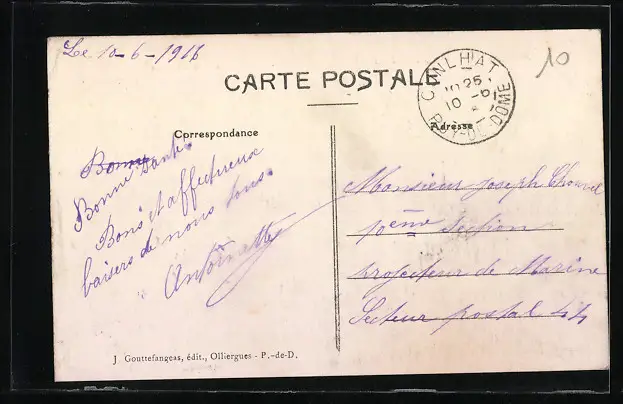 Le 10-6-1916
10
CARTE POSTALE
CUNLHAT
10 - 6
PUY-DE-DOME
Correspondance
Adresse
Bonne
Bonne Santé
Bons et affectueux
baisers de nous tous.
Antoinette
Monsieur Joseph
10ème Section
projecteur de Marine
Secteur postal 44
J Gouttefangeas, édit., Olliergues - P.-de-D.